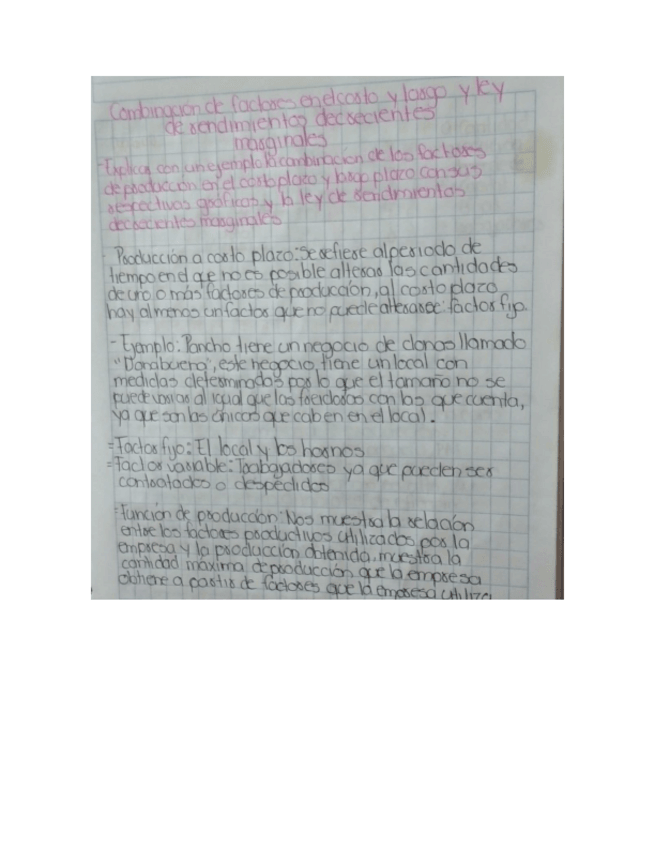 Combinación de factores en el corto y largo y ley
de rendimientos decrecientes
marginales
-Explicar con un ejemplo la combinacion de los factores
de producción en el corto plazo y largo plazo con sus
respectivos graficos y la ley de rendimientos
decrecientes marginales
Producción a corto plazo: Se refiere al periodo de
tiempo en el que no es posible alterar las cantidades
de uno o más factores de producción, al corto plazo
hay al menos un factor que no puede alterarse: factor fijo.
- Ejemplo: Pancho tiene un negocio de donas llamado
"Donabuena", este negocio, tiene un local con
medidas determinadas por lo que el tamaño no se
puede variar al igual que las con los que cuenta,
ya que son los únicos que caben en el local.
= Factor fijo: El local y los hornos
= Factor variable: Trabajadores ya que pueden ser
contratados o despedidos
= Función de producción: Nos muestra la relación
entre los factores productivos utilizados por la
empresa y la producción obtenida, muestra la
cantidad máxima de producción que la empresa
obtiene a partir de factores que la empresa utiliza